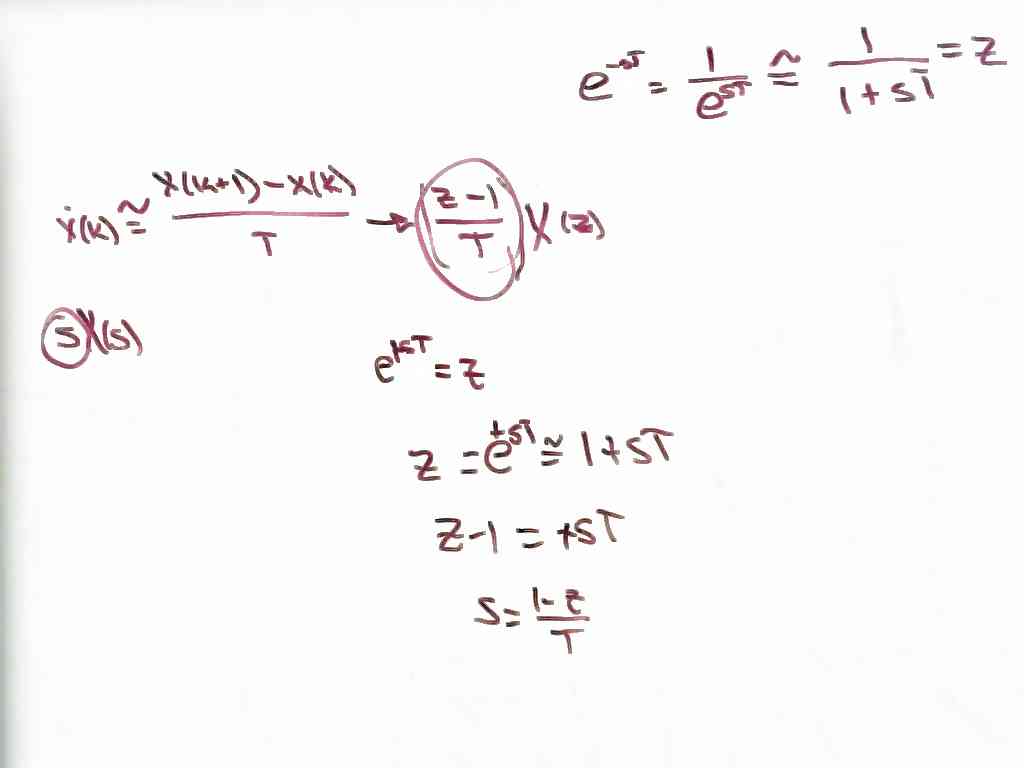 e^{-sT} = 1/e^{sT} ≅ 1/(1+sT) = z
ẋ(k) ≅ (x(k+1) - x(k))/T → ((z-1)/T) X(z)
sX(s)
e^{+sT} = z
z = e^{+sT} ≅ 1+sT
z-1 = +sT
s = (1-z)/T